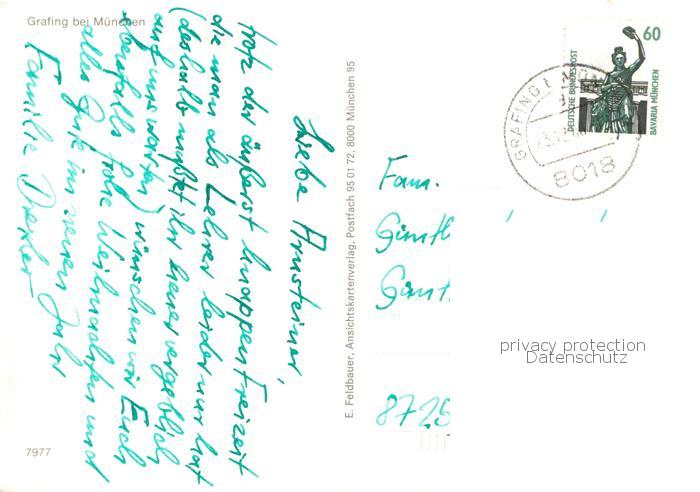 Grafing bei München
Liebe Arnsteiner,
trotz der äußerst knappen Freizeit
die man als Lehrer leider nur hat
(deshalb mußtet ihr heuer vergeblich
auf uns warten) wünschen wir Euch
ebenfalls frohe Weihnachten und
alles Gute im neuen Jahr
Familie
7977
E. Feldbauer, Ansichtskartenverlag, Postfach 95 01 72, 8000 München 95
60
DEUTSCHE BUNDESPOST
BAVARIA MÜNCHEN
GRAFING
8018
Fam.
8725
privacy protection
Datenschutz